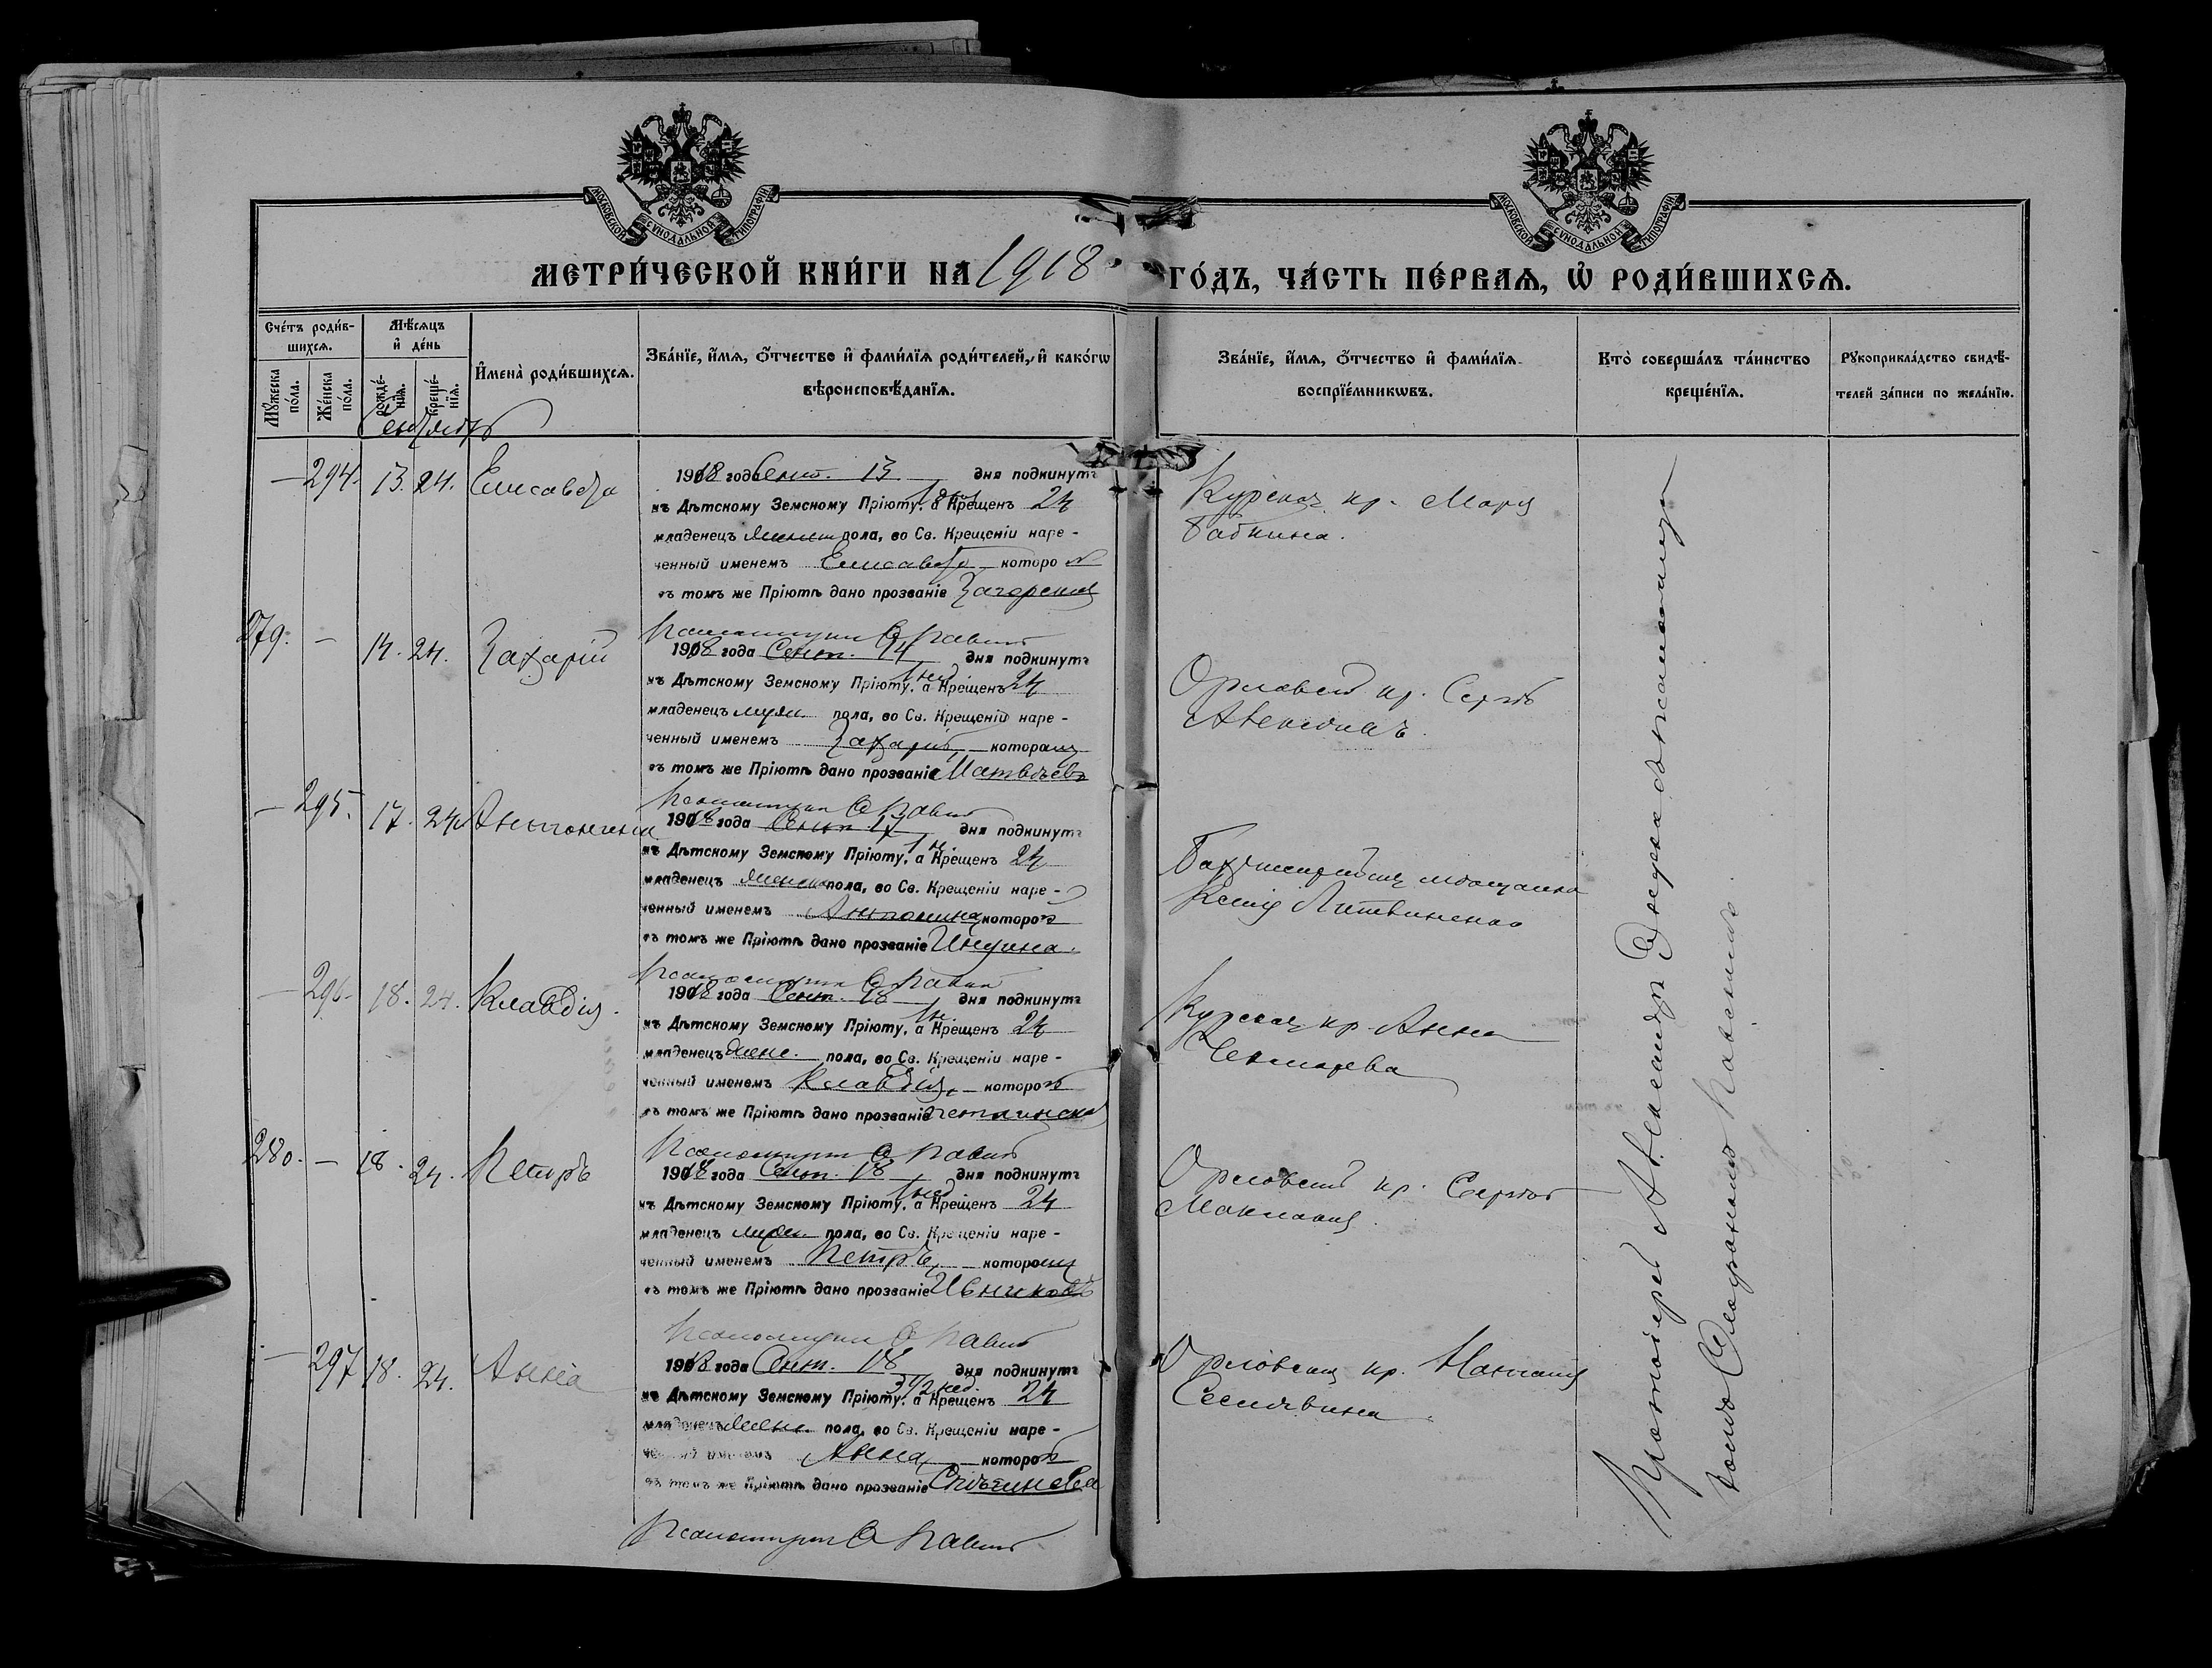 МОСКОВСКОЙ СѴНОДАЛЬНОЙ ТИПОГРАФІИ
МОСКОВСКОЙ СѴНОДАЛЬНОЙ ТИПОГРАФІИ
МЕТРИ́ЧЕСКОЙ КНИ́ГИ НА 1918 ГО́ДЪ, ЧА́СТЬ ПЕ́РВАѦ, Ѡ҆ РОДИ́ВШИХСѦ.
Сче́тъ роди́в-
шихсѧ.
Мꙋ́жеска по́ла.
Же́нска по́ла.
Мѣ́сѧцъ
и҆ де́нь
рожде́-
нїѧ.
креще́-
нїѧ.
И҆мена̀ роди́вшихсѧ.
Зва́нїе, и҆́мѧ, ѻ҆́тчество и҆ фами́лїѧ роди́телей, и҆ како́гѡ
вѣроисповѣ́данїѧ.
Зва́нїе, и҆́мѧ, ѻ҆́тчество и҆ фами́лїѧ
воспрїе́мникѡвъ.
Кто̀ соверша́лъ та́инство
креще́нїѧ.
Рꙋкоприкла́дство свидѣ́-
телей за́писи по жела́нїю.
Сентябрь
— 294. 13. 24. Елисавета
1918 года Сент. 13 дня подкинутъ
къ Дѣтскому Земскому Пріюту, а Крещенъ 24
младенецъ женск пола, во Св. Крещеніи наре-
ченный именемъ Елисавета которо й
въ томъ же Пріютѣ дано прозваніе Загорская
Курская кр. Марія
Бабкина.
279. — 14. 24. Захарій
1918 года Сент. 14 дня подкинутъ
къ Дѣтскому Земскому Пріюту, а Крещенъ 24
младенецъ муж. пола, во Св. Крещеніи наре-
ченный именемъ Захарій, которому
въ томъ же Пріютѣ дано прозваніе Матвѣевъ
Орловскій кр. Сергѣй
— 295. 17. 24 Антонина
1918 года Сент. 17 дня подкинутъ
къ Дѣтскому Земскому Пріюту, а Крещенъ 24
младенецъ женск пола, во Св. Крещеніи наре-
ченный именемъ Антонина которой
въ томъ же Пріютѣ дано прозваніе
мѣщанка
Ксенія Литвиненко
— 296. 18. 24. Клавдія.
1918 года Сент. 18 дня подкинутъ
къ Дѣтскому Земскому Пріюту, а Крещенъ 24
младенецъ женс. пола, во Св. Крещеніи наре-
ченный именемъ Клавдія, которой
въ томъ же Пріютѣ дано прозваніе
Курская кр. Анна
280. — 18. 24. Петръ
1918 года Сент. 18 дня подкинутъ
къ Дѣтскому Земскому Пріюту, а Крещенъ 24
младенецъ муж. пола, во Св. Крещеніи наре-
ченный именемъ Петръ, которому
въ томъ же Пріютѣ дано прозваніе Ивниковъ
Орловскій кр. Сергѣй
— 297 18. 24. Анна
1918 года Сент. 18 дня подкинутъ
3 1/2 нед.
къ Дѣтскому Земскому Пріюту, а Крещенъ 24
младенецъ женс. пола, во Св. Крещеніи наре-
ченный именемъ Анна, которой
въ томъ же Пріютѣ дано прозваніе
Орловская кр. Наталія
Протоіерей Александръ